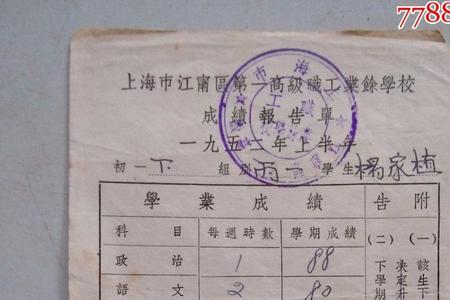 7788
上海市江甯區第一高級職工業餘學校
成績報告單
一九五二年上半年
初一下 組別丙一 學生楊家植
學業成績
科目 每週時數 學期成績
政治 1 88
語文 2 80
附告
(一)該生下
(二)決定升
下學期